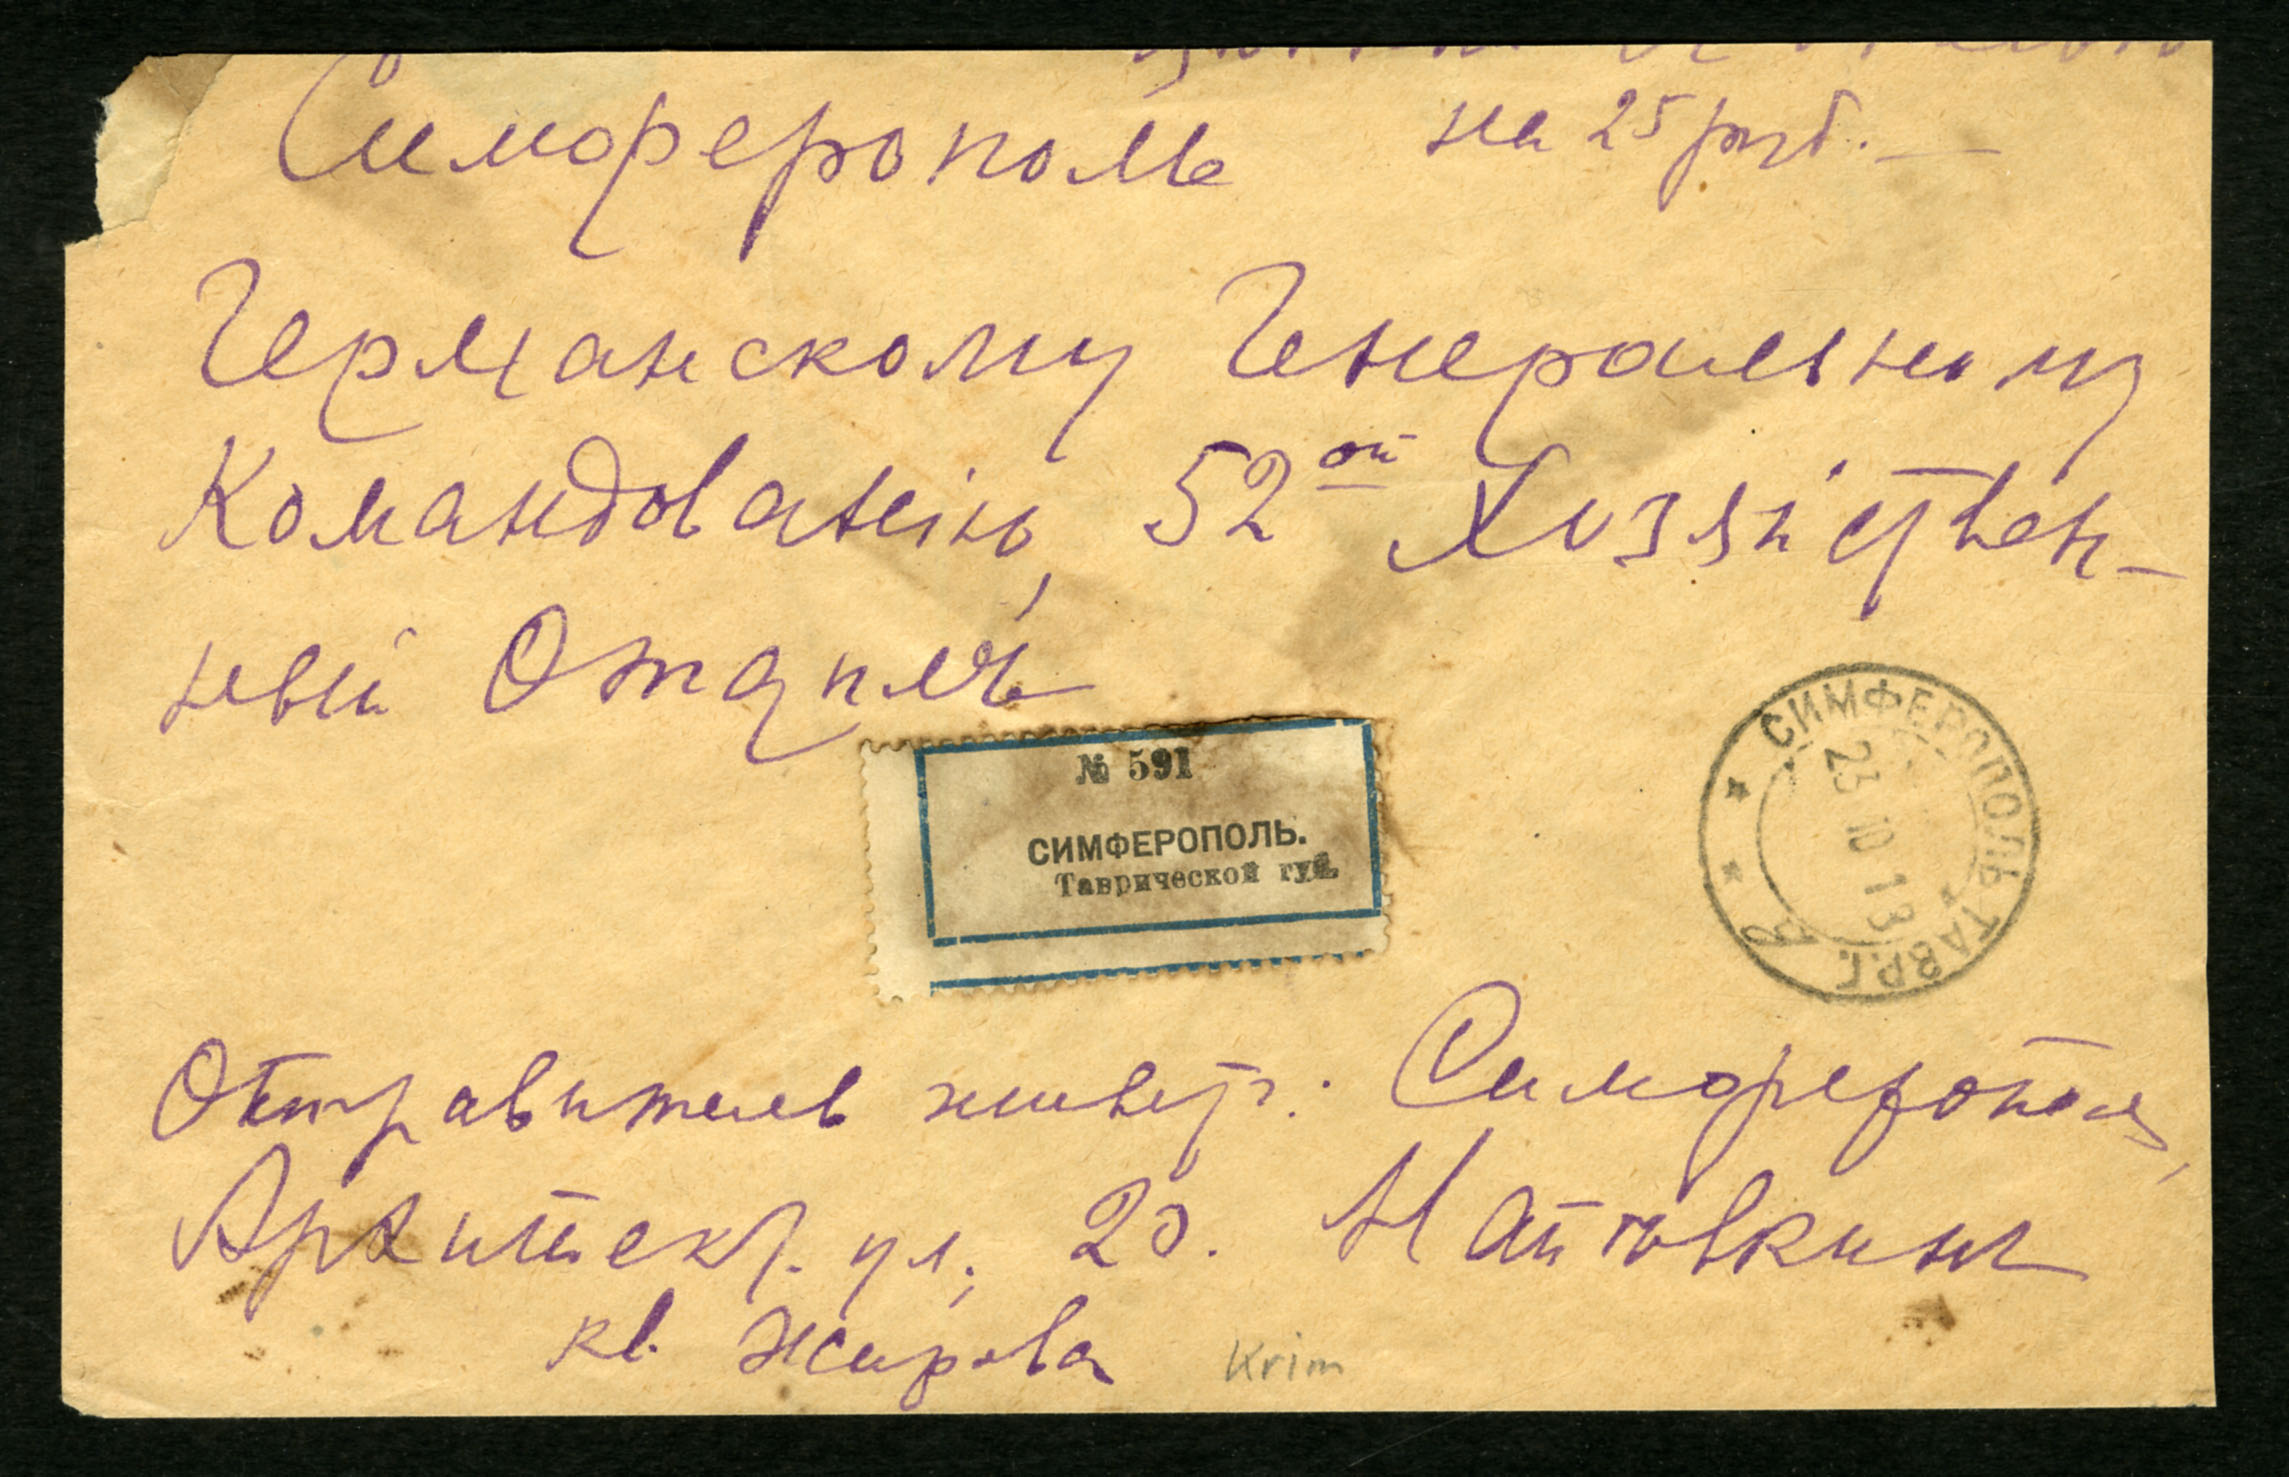 Симферополь на 25 руб.
Германскому Генеральному
Командованію, 52ой Хозяйствен-
ный Отдѣлъ
№ 591
СИМФЕРОПОЛЬ.
Таврической губ.
СИМФЕРОПОЛЬ ТАВР.Г.
23 10 1 8
Отправитель живетъ: Симферополь,
Архитект. ул., 20.
кв. Жирова
Krim